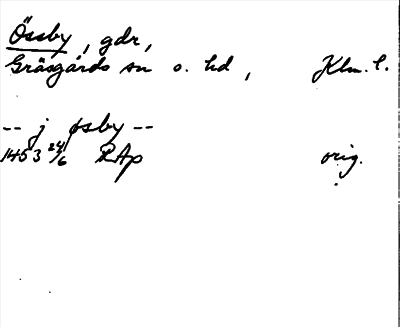 Össby, gdr,
Gräsgårds sn o. hd, Klm. l.
-- j øsby --
1453 24/6 RAp orig.